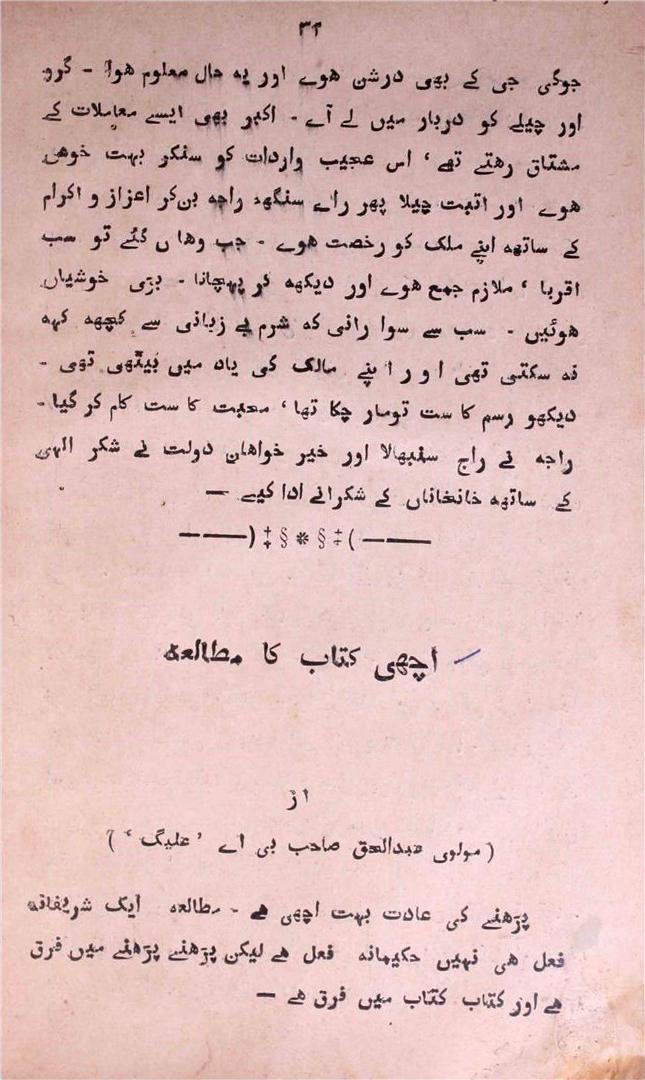 ۳۴
جوگی جی کے بھی درشن ہوے اور یہ حال معلوم ہوا - گرو
اور چیلے کو دربار میں لے آے - اکبر بھی ایسے معاملات کے
مشتاق رہتے تھے ' اس عجیب واردات کو سنکر بہت خوش
ہوے اور اتیت چیلا پھر راے سنگھ راجہ بن کر اعزاز و اکرام
کے ساتھ اپنے ملک کو رخصت ہوے - جب وہاں گئے تو سب
اقربا ' ملازم جمع ہوے اور دیکھ کر پہچانا - بڑی خوشیاں
ہوئیں - سب سے سوا رانی کہ شرم بے زبانی سے کچھ کہہ
نہ سکتی تھی اور اپنے مالک کی یاد میں بیٹھی تھی -
دیکھو رسم کا ست تو مار چکا تھا ' محبت کا ست کام کر گیا -
راجہ نے راج سنبھالا اور خیر خواہان دولت نے شکر الہی
کے ساتھ خانخاناں کے شکرانے ادا کیے —
——(‡§*§‡)——
اچھی کتاب کا مطالعہ
از
( مولوی عبدالحق صاحب بی اے ' علیگ ' )
پڑھنے کی عادت بہت اچھی ہے - مطالعہ ایک شریفانہ
فعل ہی نہیں حکیمانہ فعل ہے لیکن پڑھنے پڑھنے میں فرق
ہے اور کتاب کتاب میں فرق ہے —